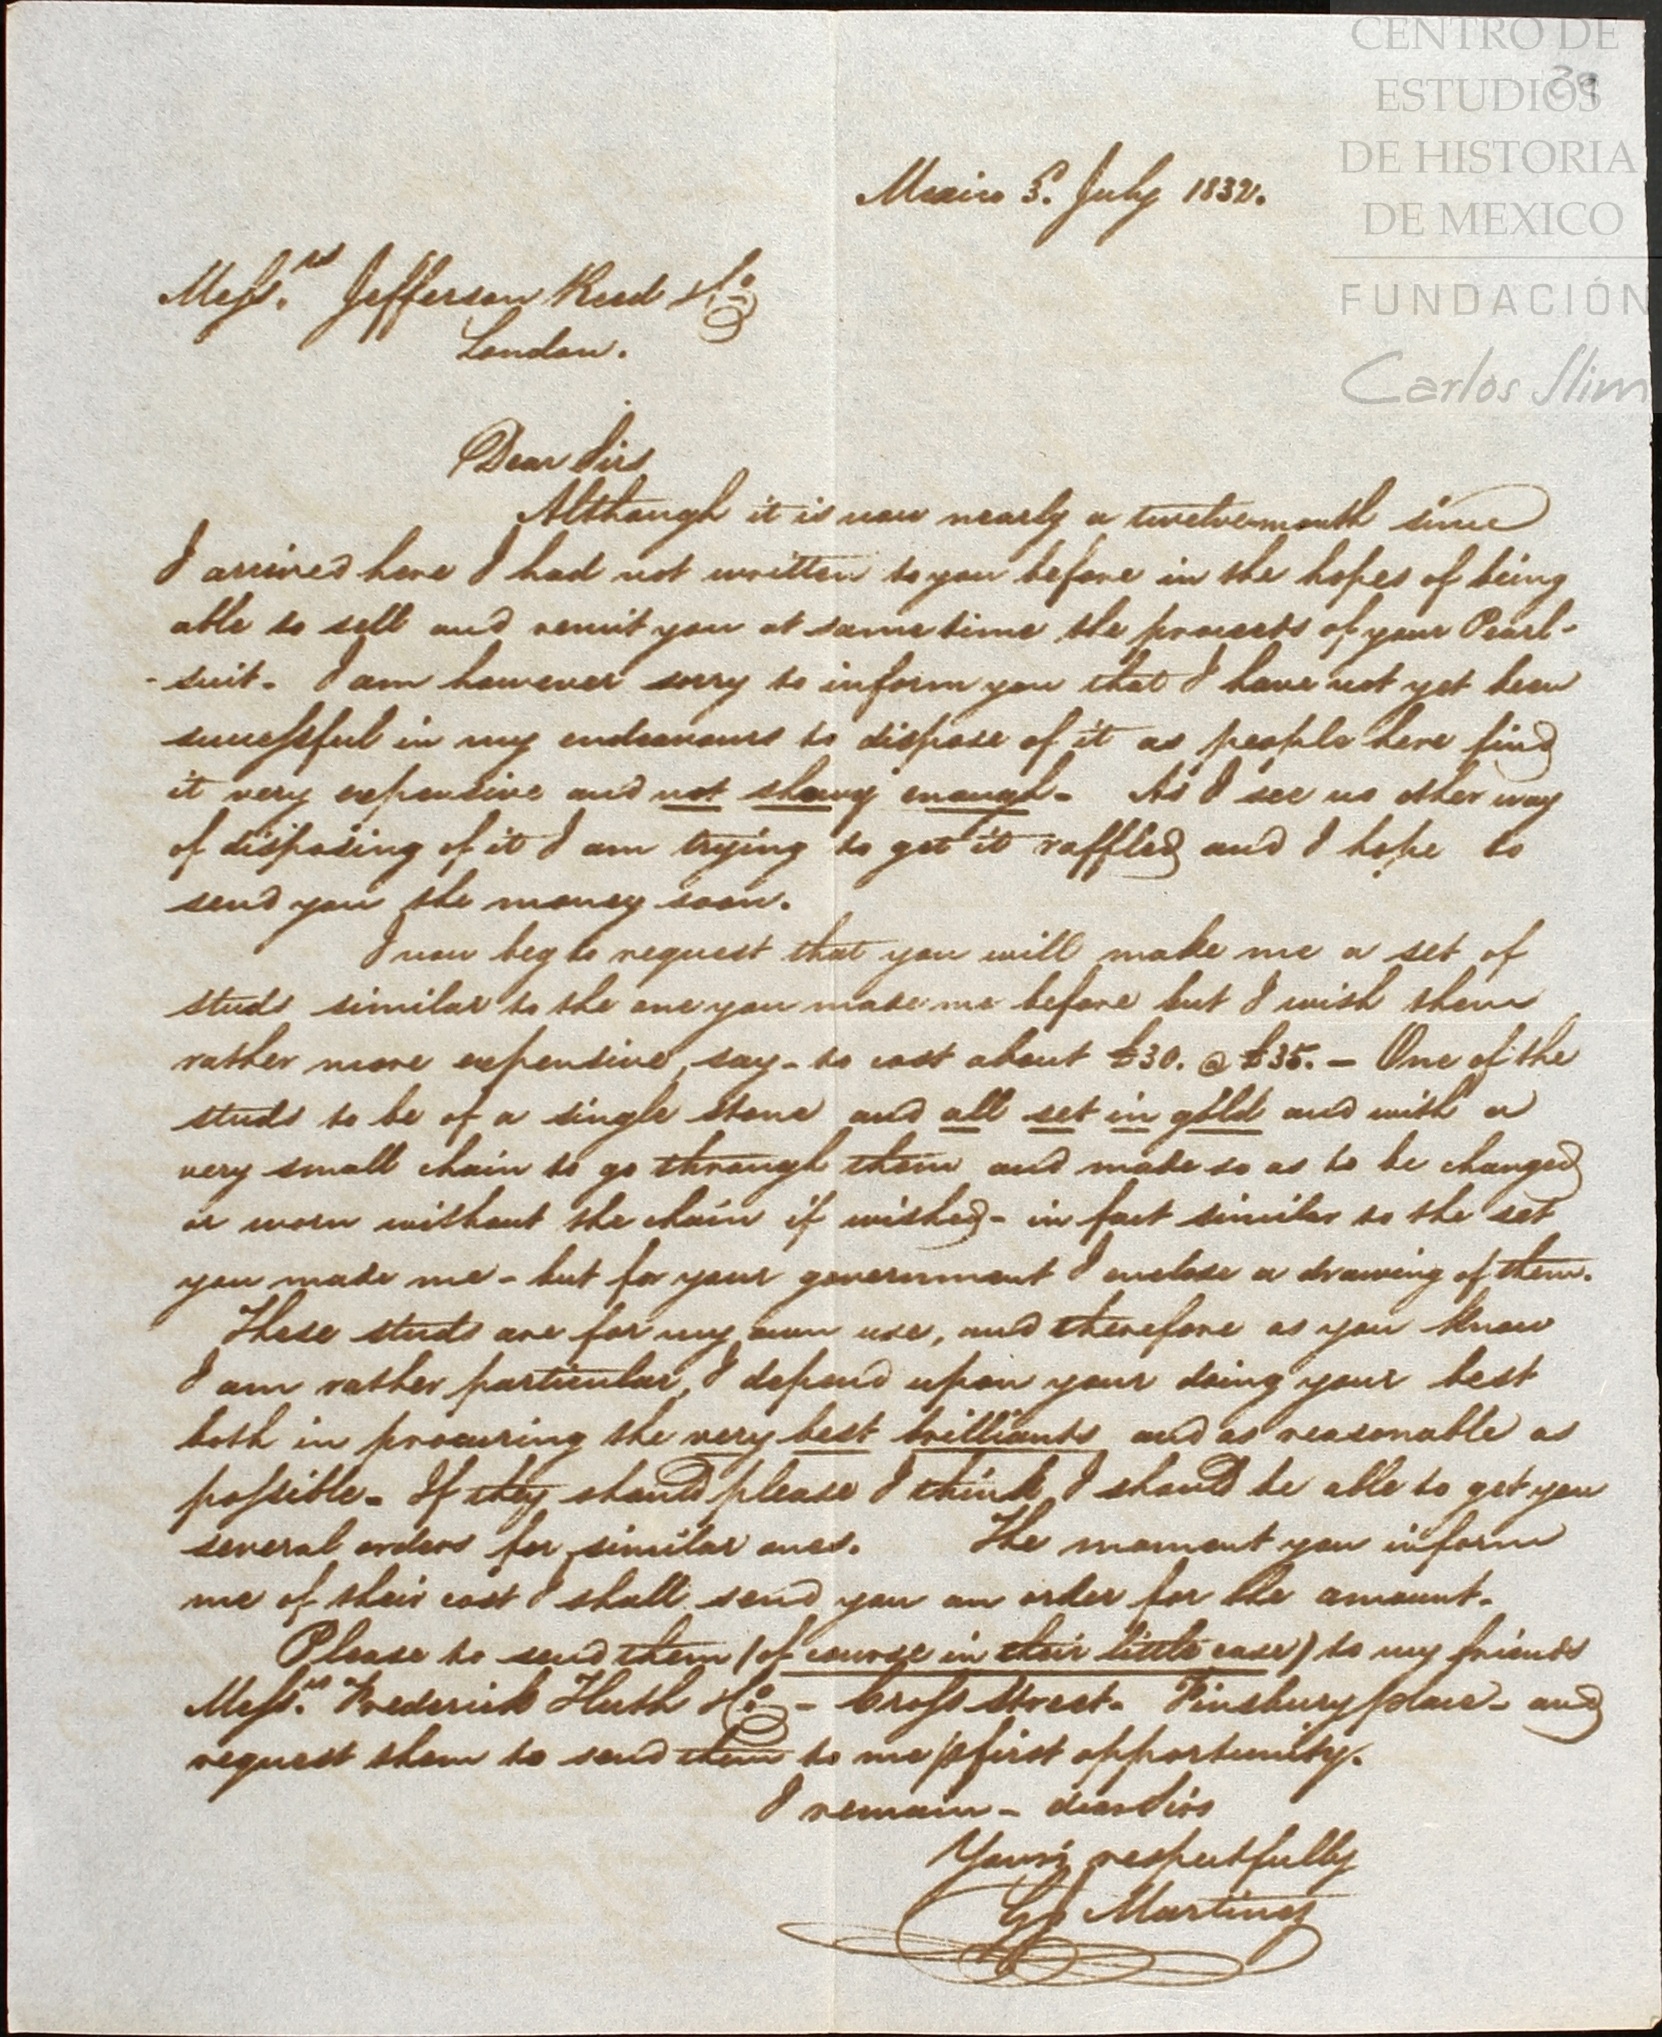 CENTRO DE
ESTUDIOS
39
DE HISTORIA
DE MEXICO
FUNDACIÓN
Carlos Slim
Mexico 3d. July 1832.
Messrs. Jefferson Reed & Co
London.
Dear Sirs
Although it is now nearly a twelvemonth since
I arrived here I had not written to you before in the hopes of being
able to sell and remit you at same time the proceeds of your Pearl-
-suit. I am however sorry to inform you that I have not yet been
successful in my endeavours to dispose of it as people here find
it very expensive and not showy enough. As I see no other way
of disposing of it I am trying to get it raffled and I hope to
send you the money soon.
I now beg to request that you will make me a set of
studs similar to the one you made me before but I wish them
rather more expensive, say - to cost about £30. @ £35. - One of the
studs to be of a single stone and all set in gold and with a
very small chain to go through them and made so as to be changed
or worn without the chain if wished - in fact similar to the set
you made me - but for your government I enclose a drawing of them.
These studs are for my own use, and therefore as you know
I am rather particular, I depend upon your doing your best
both in procuring the very best brilliants and as reasonable as
possible. If they should please I think I should be able to get you
several orders for similar ones. The moment you inform
me of their cost I shall send you an order for the amount.
Please to send them (of course in their little case) to my friends
Messrs. Frederick Huth & Co - Cross Street. Finsbury place - and
request them to send them to me p first opportunity.
I remain - dear Sirs
Yours respectfully
Martinez